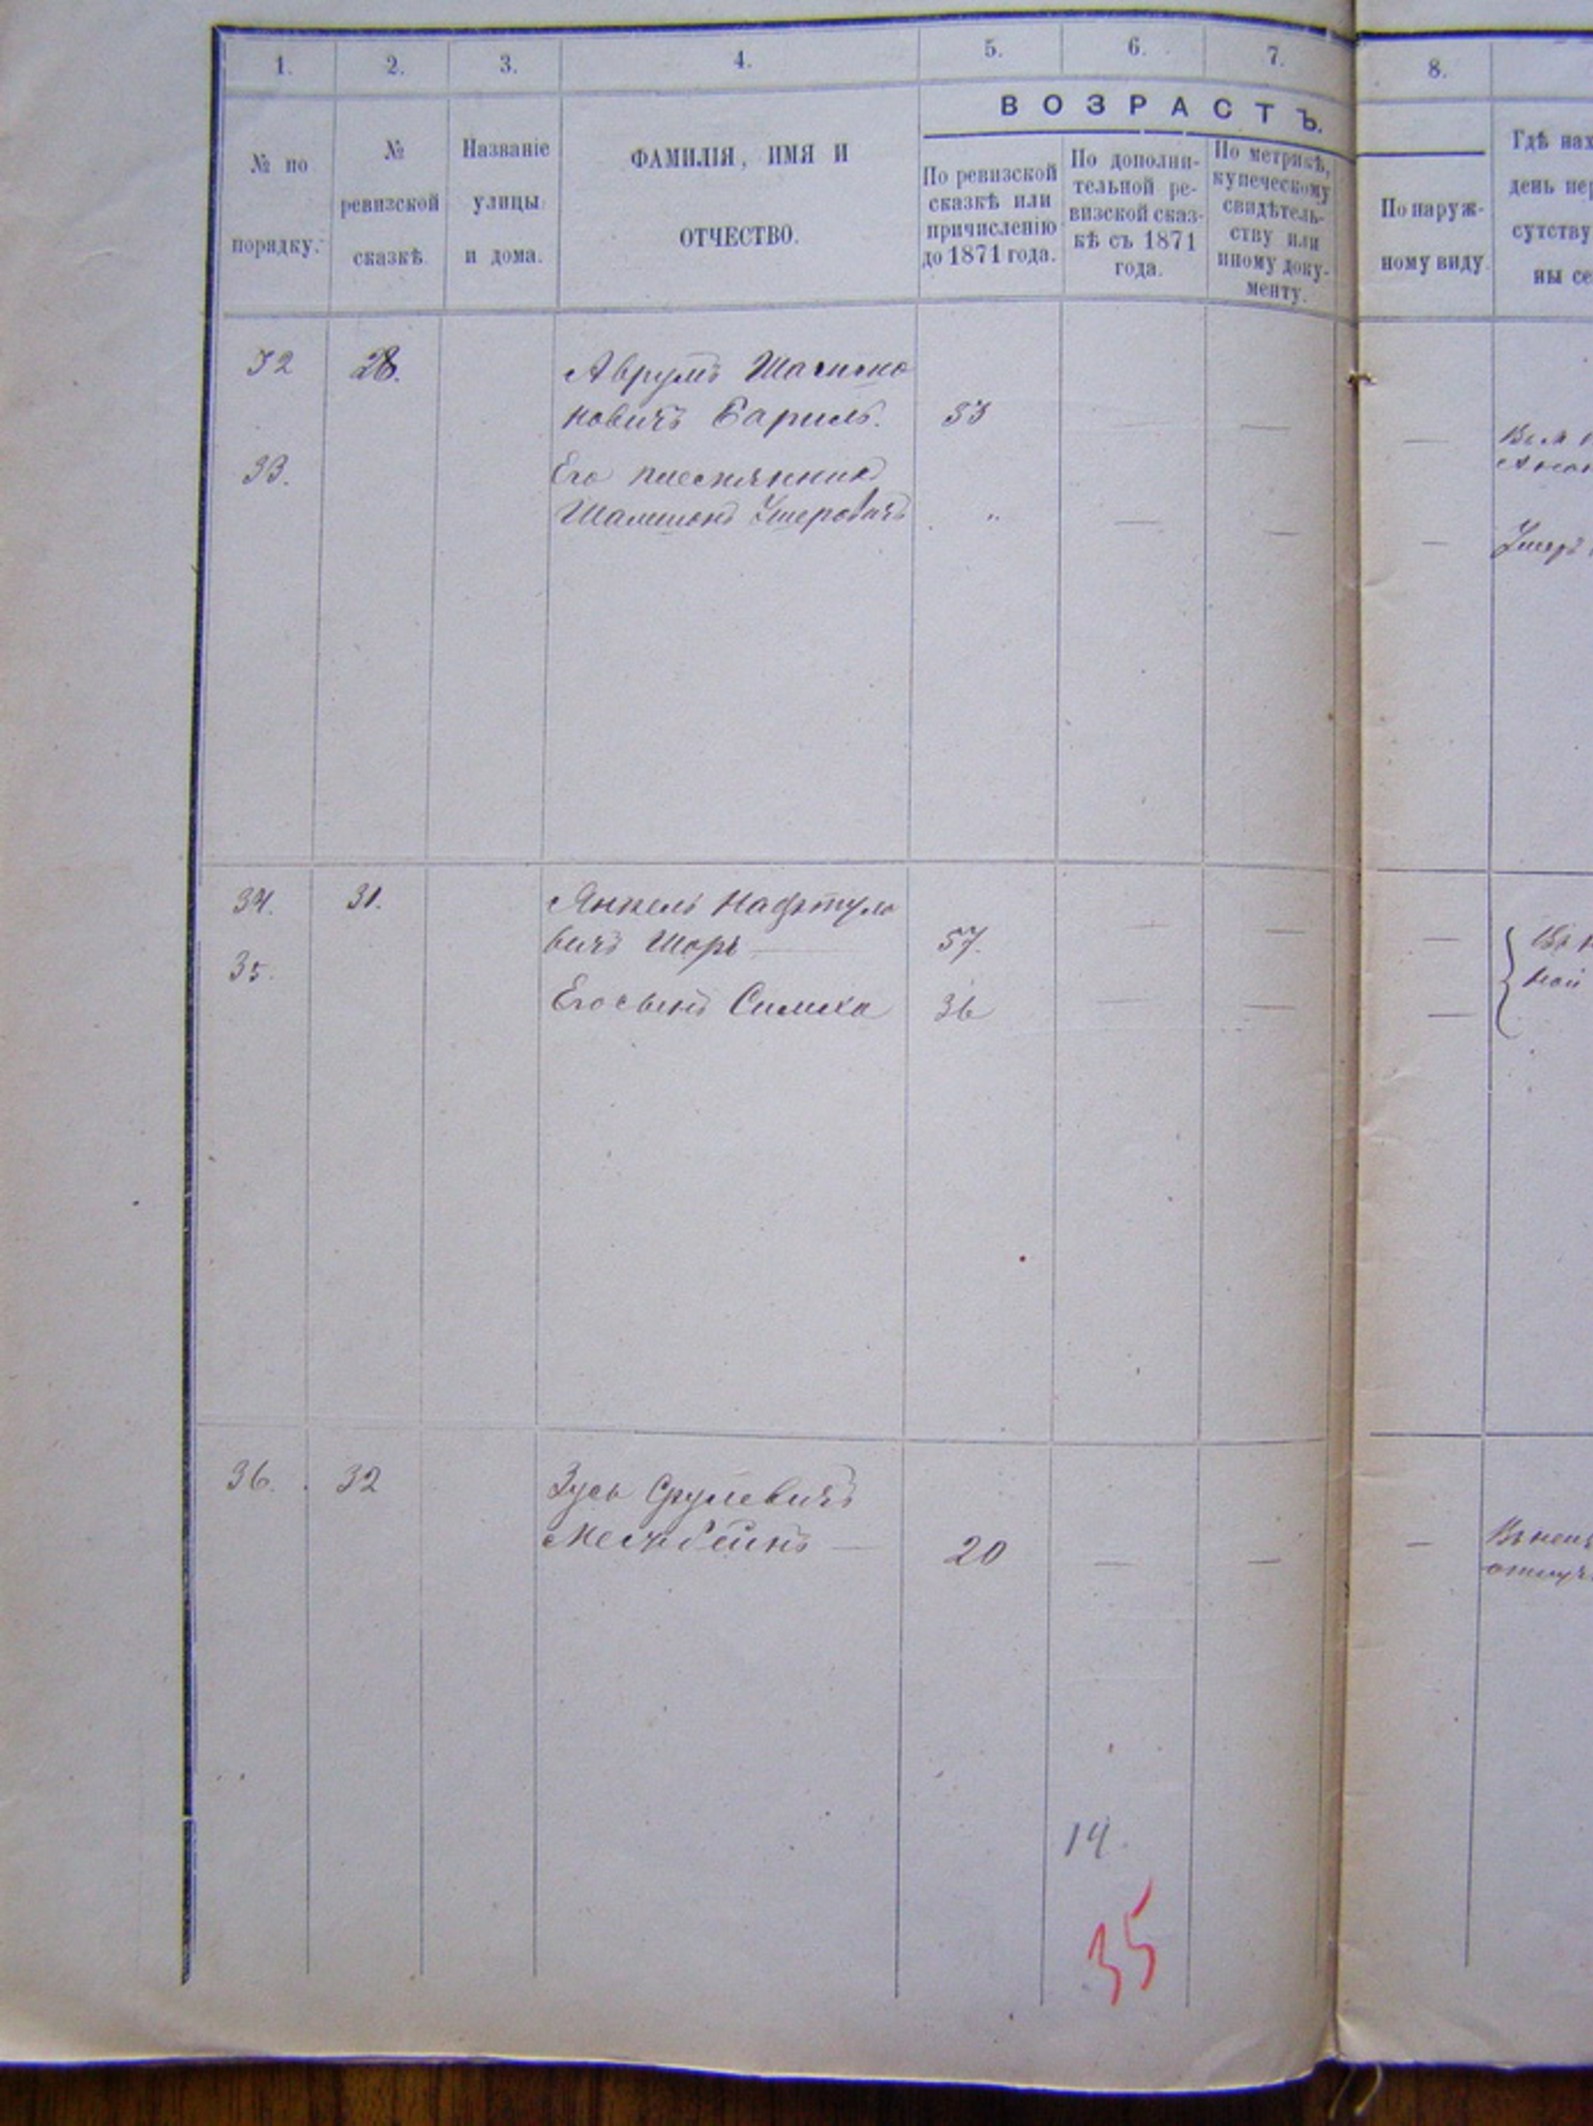 1. 2. 3. 4. 5. 6. 7. 8.
ВОЗРАСТЪ.
№ по
порядку.
№
ревизской
сказкѣ
Названіе
улицы
и дома.
ФАМИЛІЯ, ИМЯ И
ОТЧЕСТВО.
По ревизской
сказкѣ или
причисленію
до 1871 года.
По дополни-
тельной ре-
визской сказ-
кѣ съ 1871
года.
По метрикѣ,
купеческому
свидѣтель-
ству или
иному доку-
менту.
По наруж-
ному виду.
Гдѣ нах
день пер
сутству
ны се
32 28. Аврумъ
новичъ Бариль. 53
33. Его племянникъ
Шлиомъ Ушеровичъ "
Умеръ
34. 31. Янкель Нафтуло
вичъ Шоръ 57.
35.
Его сынъ Симха 36
36. 32 Зусь Срулевичъ
20
14.
35